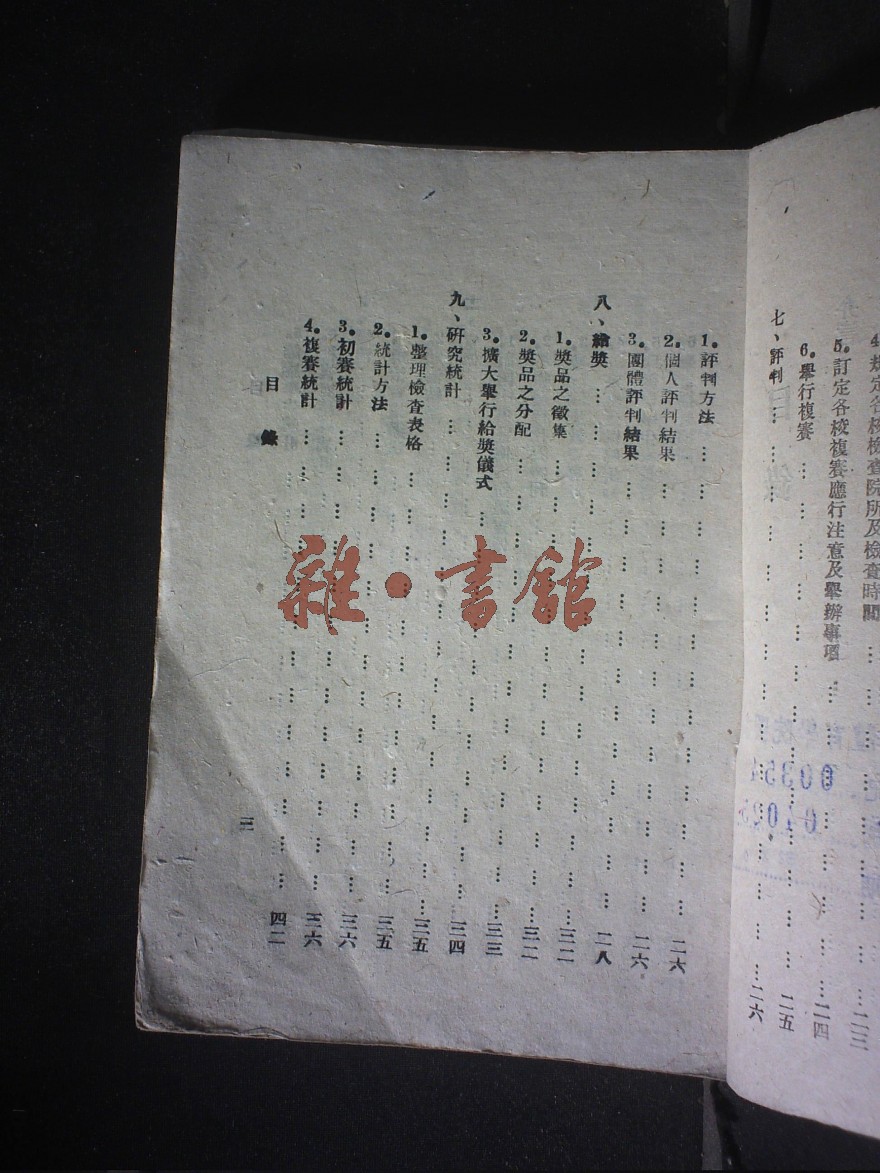 4.規定各校檢查院所及檢查時間……二三
5.訂定各校複賽應行注意及舉辦事項……二四
6.舉行複賽……二五
七、評判……二六
1.評判方法……二六
2.個人評判結果……二六
3.團體評判結果……二八
八、給獎……三二
1.獎品之徵集……三二
2.獎品之分配……三三
3.擴大舉行給獎儀式……三四
九、研究統計……三五
1.整理檢查表格……三五
2.統計方法……三六
3.初賽統計……三六
4.複賽統計……四二
目錄
三
雜•書館